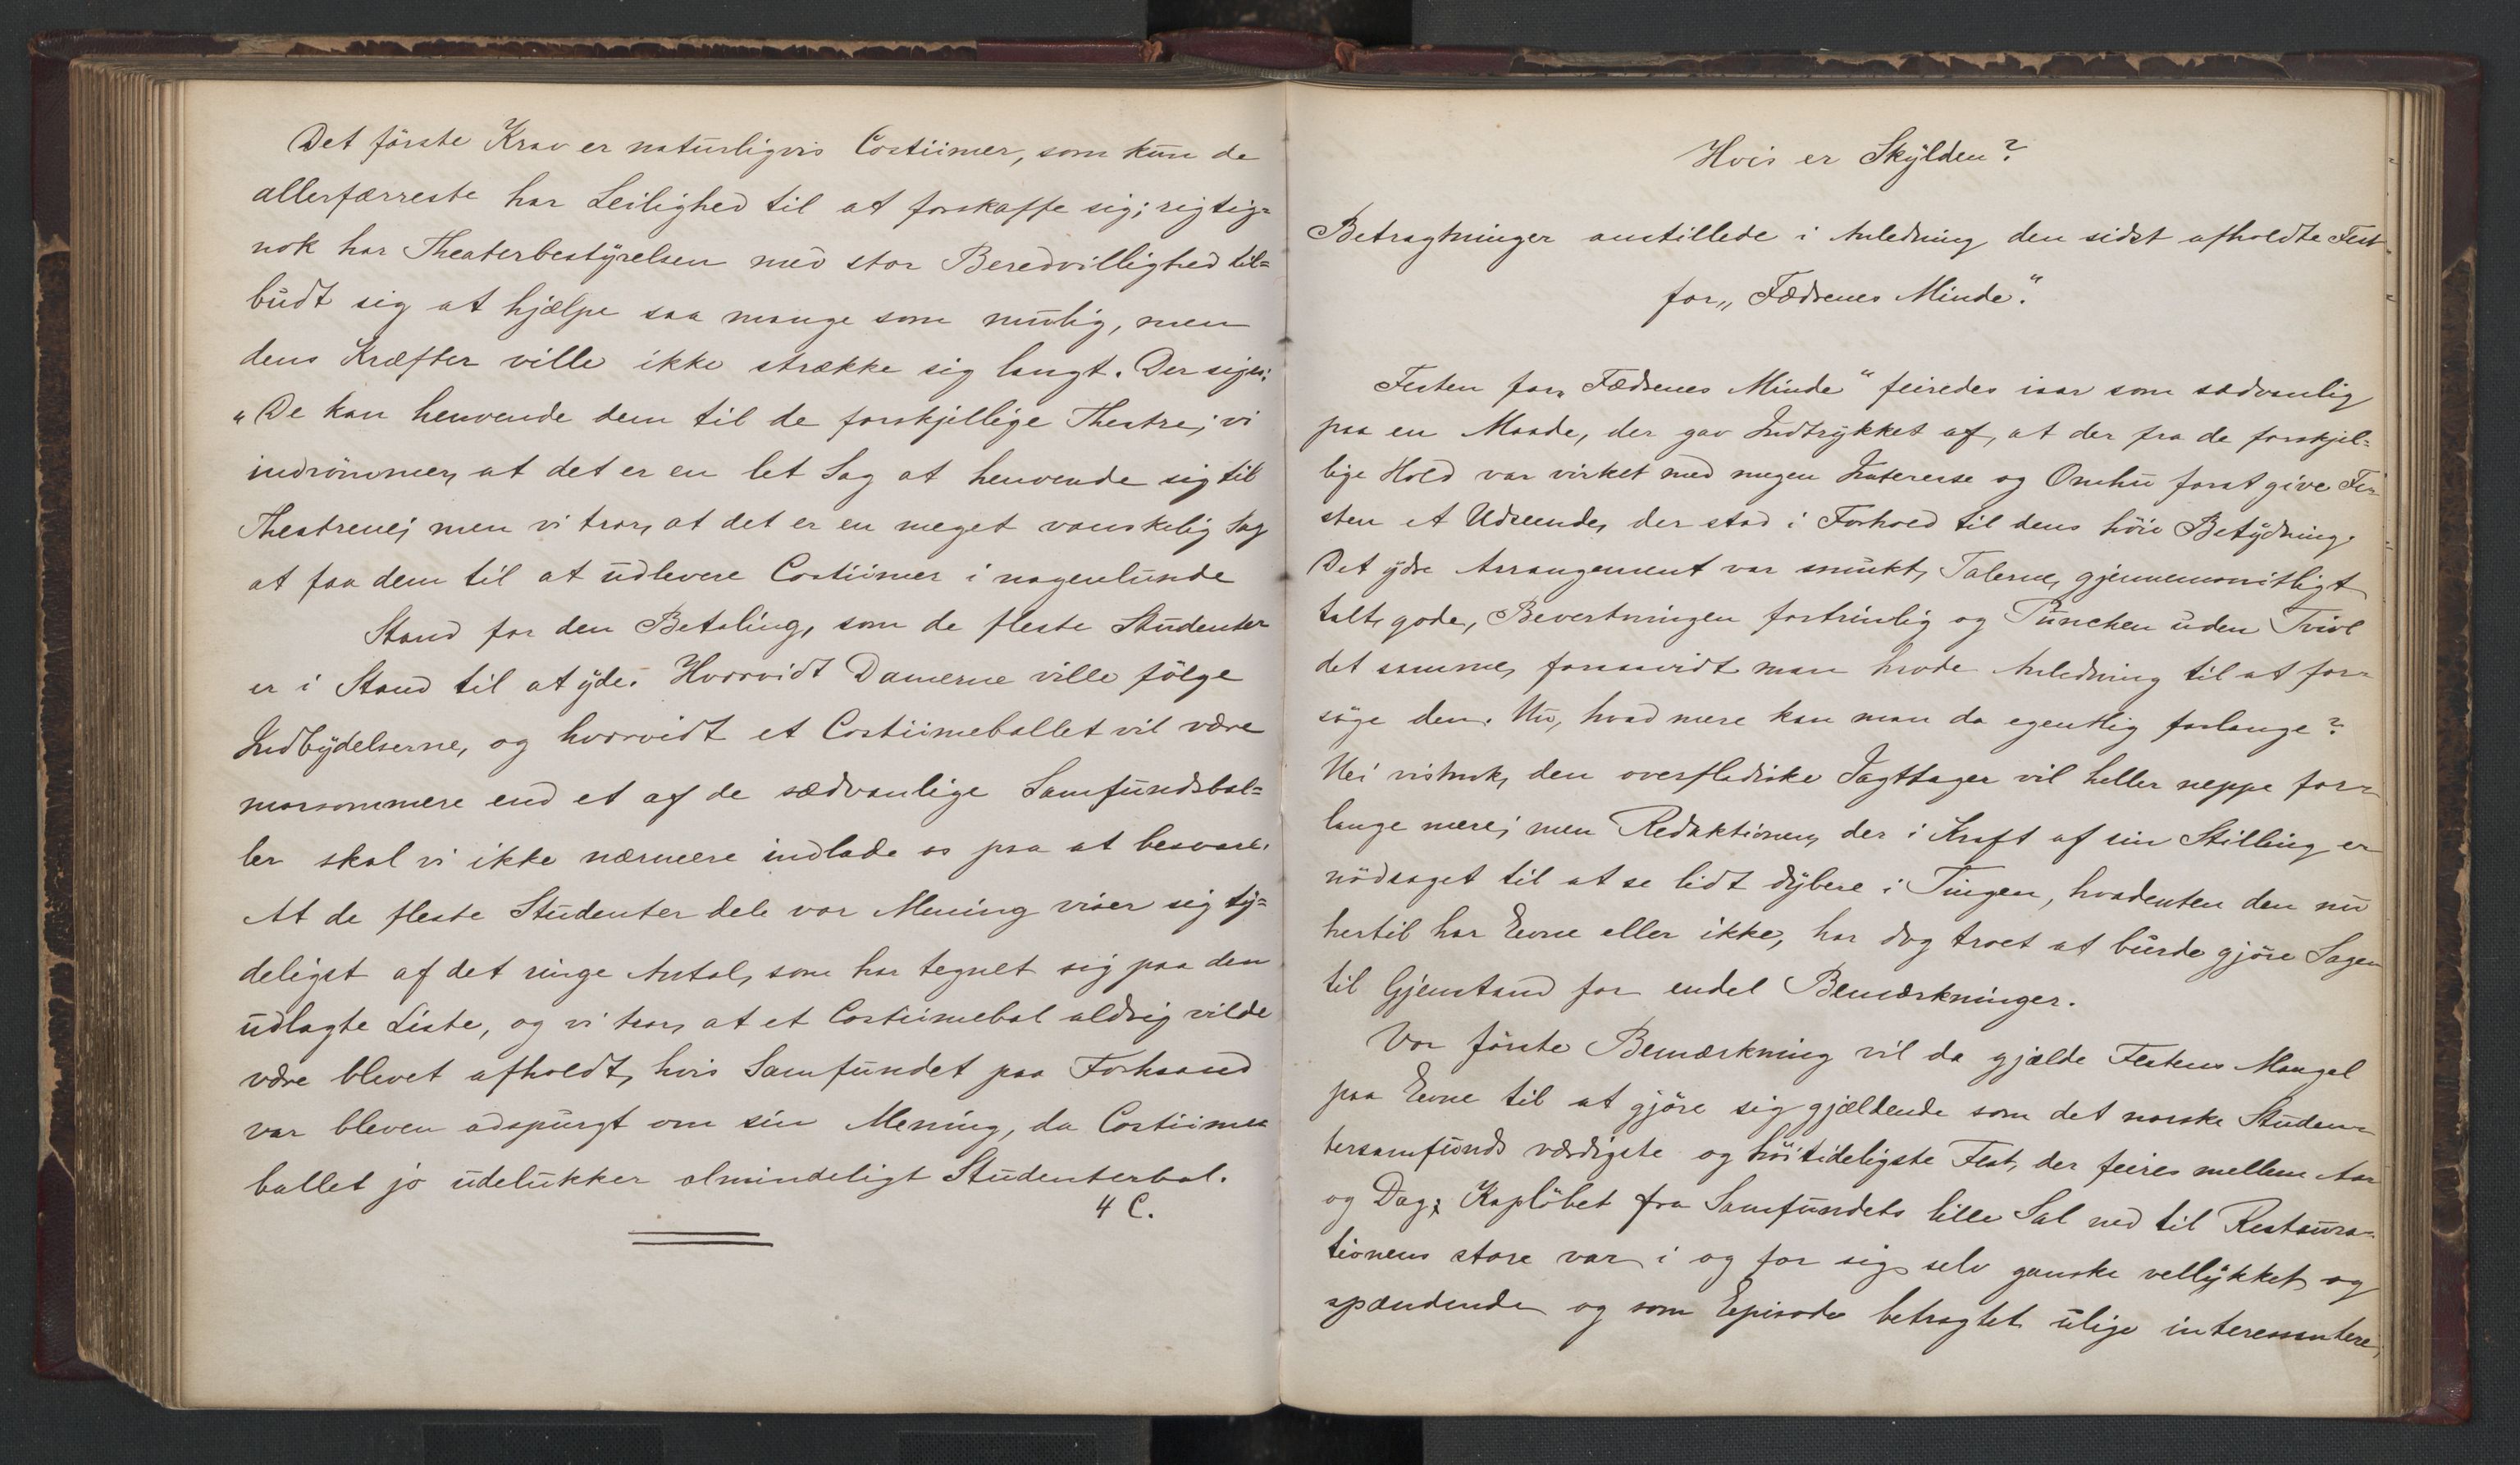 Det förste Krav er naturligvis Costümer, som kun de
allerfærreste har Leilighed til at forskaffe sig; rigtig=
nok har Theaterbestyrelsen med stor Beredvillighed til=
budt sig at hjælpe saa mange som mulig, men
dens Kræfter ville ikke strække sig langt. Der siges:
"De kan henvende dem til de forskjellige Theatre; vi
indrömmer, at det er en let Sag at henvende sig til
Theatrene; men vi tror, at det er en meget vanskelig Sag
at faa dem til at udlevere Costümer i nogenlunde
Stand for den Betaling, som de fleste Studenter
er i Stand til at yde. Hvorvidt Damerne ville fölge
Indbydelserne, og hvorvidt et Costümeballet vil være
morsommere end et af de sædvanlige Samfundsbal=
ler skal vi ikke nærmere indlade os paa at besvare.
At de fleste Studenter dele vor Mening viser sig ty=
deligst af det ringe Antal, som har tegnet sig paa den
udlagte Liste, og vi tror, at et Costümebal aldrig vilde
være blevet afholdt, hvis Samfundet paa Forhaand
var bleven adspurgt om sin Mening, da Costüme
ballet jo udelukker almindeligt Studenterbal.
4 C.
Hvis er Skylden?
Betragtninger anstillede i Anledning den sidst afholdte Fest
for „Fædrenes Minde".
Festen for „Fædrenes Minde" feiredes iaar som sædvanlig
paa en Maade, der gav Indtrykket af, at der fra de forskjel=
lige Hold var virket med megen Interesse og Omhu for at give Fe=
sten et Udseende, der stod i Forhold til dens höie Betydning.
Det ydre Arrangement var smukt, Talerne, gjennemsnitligt
talt, gode, Bevertningen fortrinlig og Punchen uden Tvivl
det samme, forsaavidt man havde Anledning til at for=
söge den. Nu, hvad mere kan man da egentlig forlange?
Nei vistnok, den overfladiske Iagttager vil heller neppe for=
lange mere; men Redaktionen, der i Kraft af sin Stilling er
nödsaget til at se lidt dybere i Tingen, hvadenten den nu
hertil har Evne eller ikke, har dog troet at burde gjöre Sagen
til Gjenstand for endel Bemærkninger.
Vor förste Bemærkning vil da gjælde Festens Mangel
paa Evne til at gjöre sig gjældende som det norske Studen=
tersamfunds værdigste og höitideligste Fest, der feires mellem Aar
og Dag; Kaplöbet fra Samfundets lille Sal ned til Restaura=
tionens store var i og for sig selv ganske vellykket og
spændende og som Episode betragtet ulige interessantere,